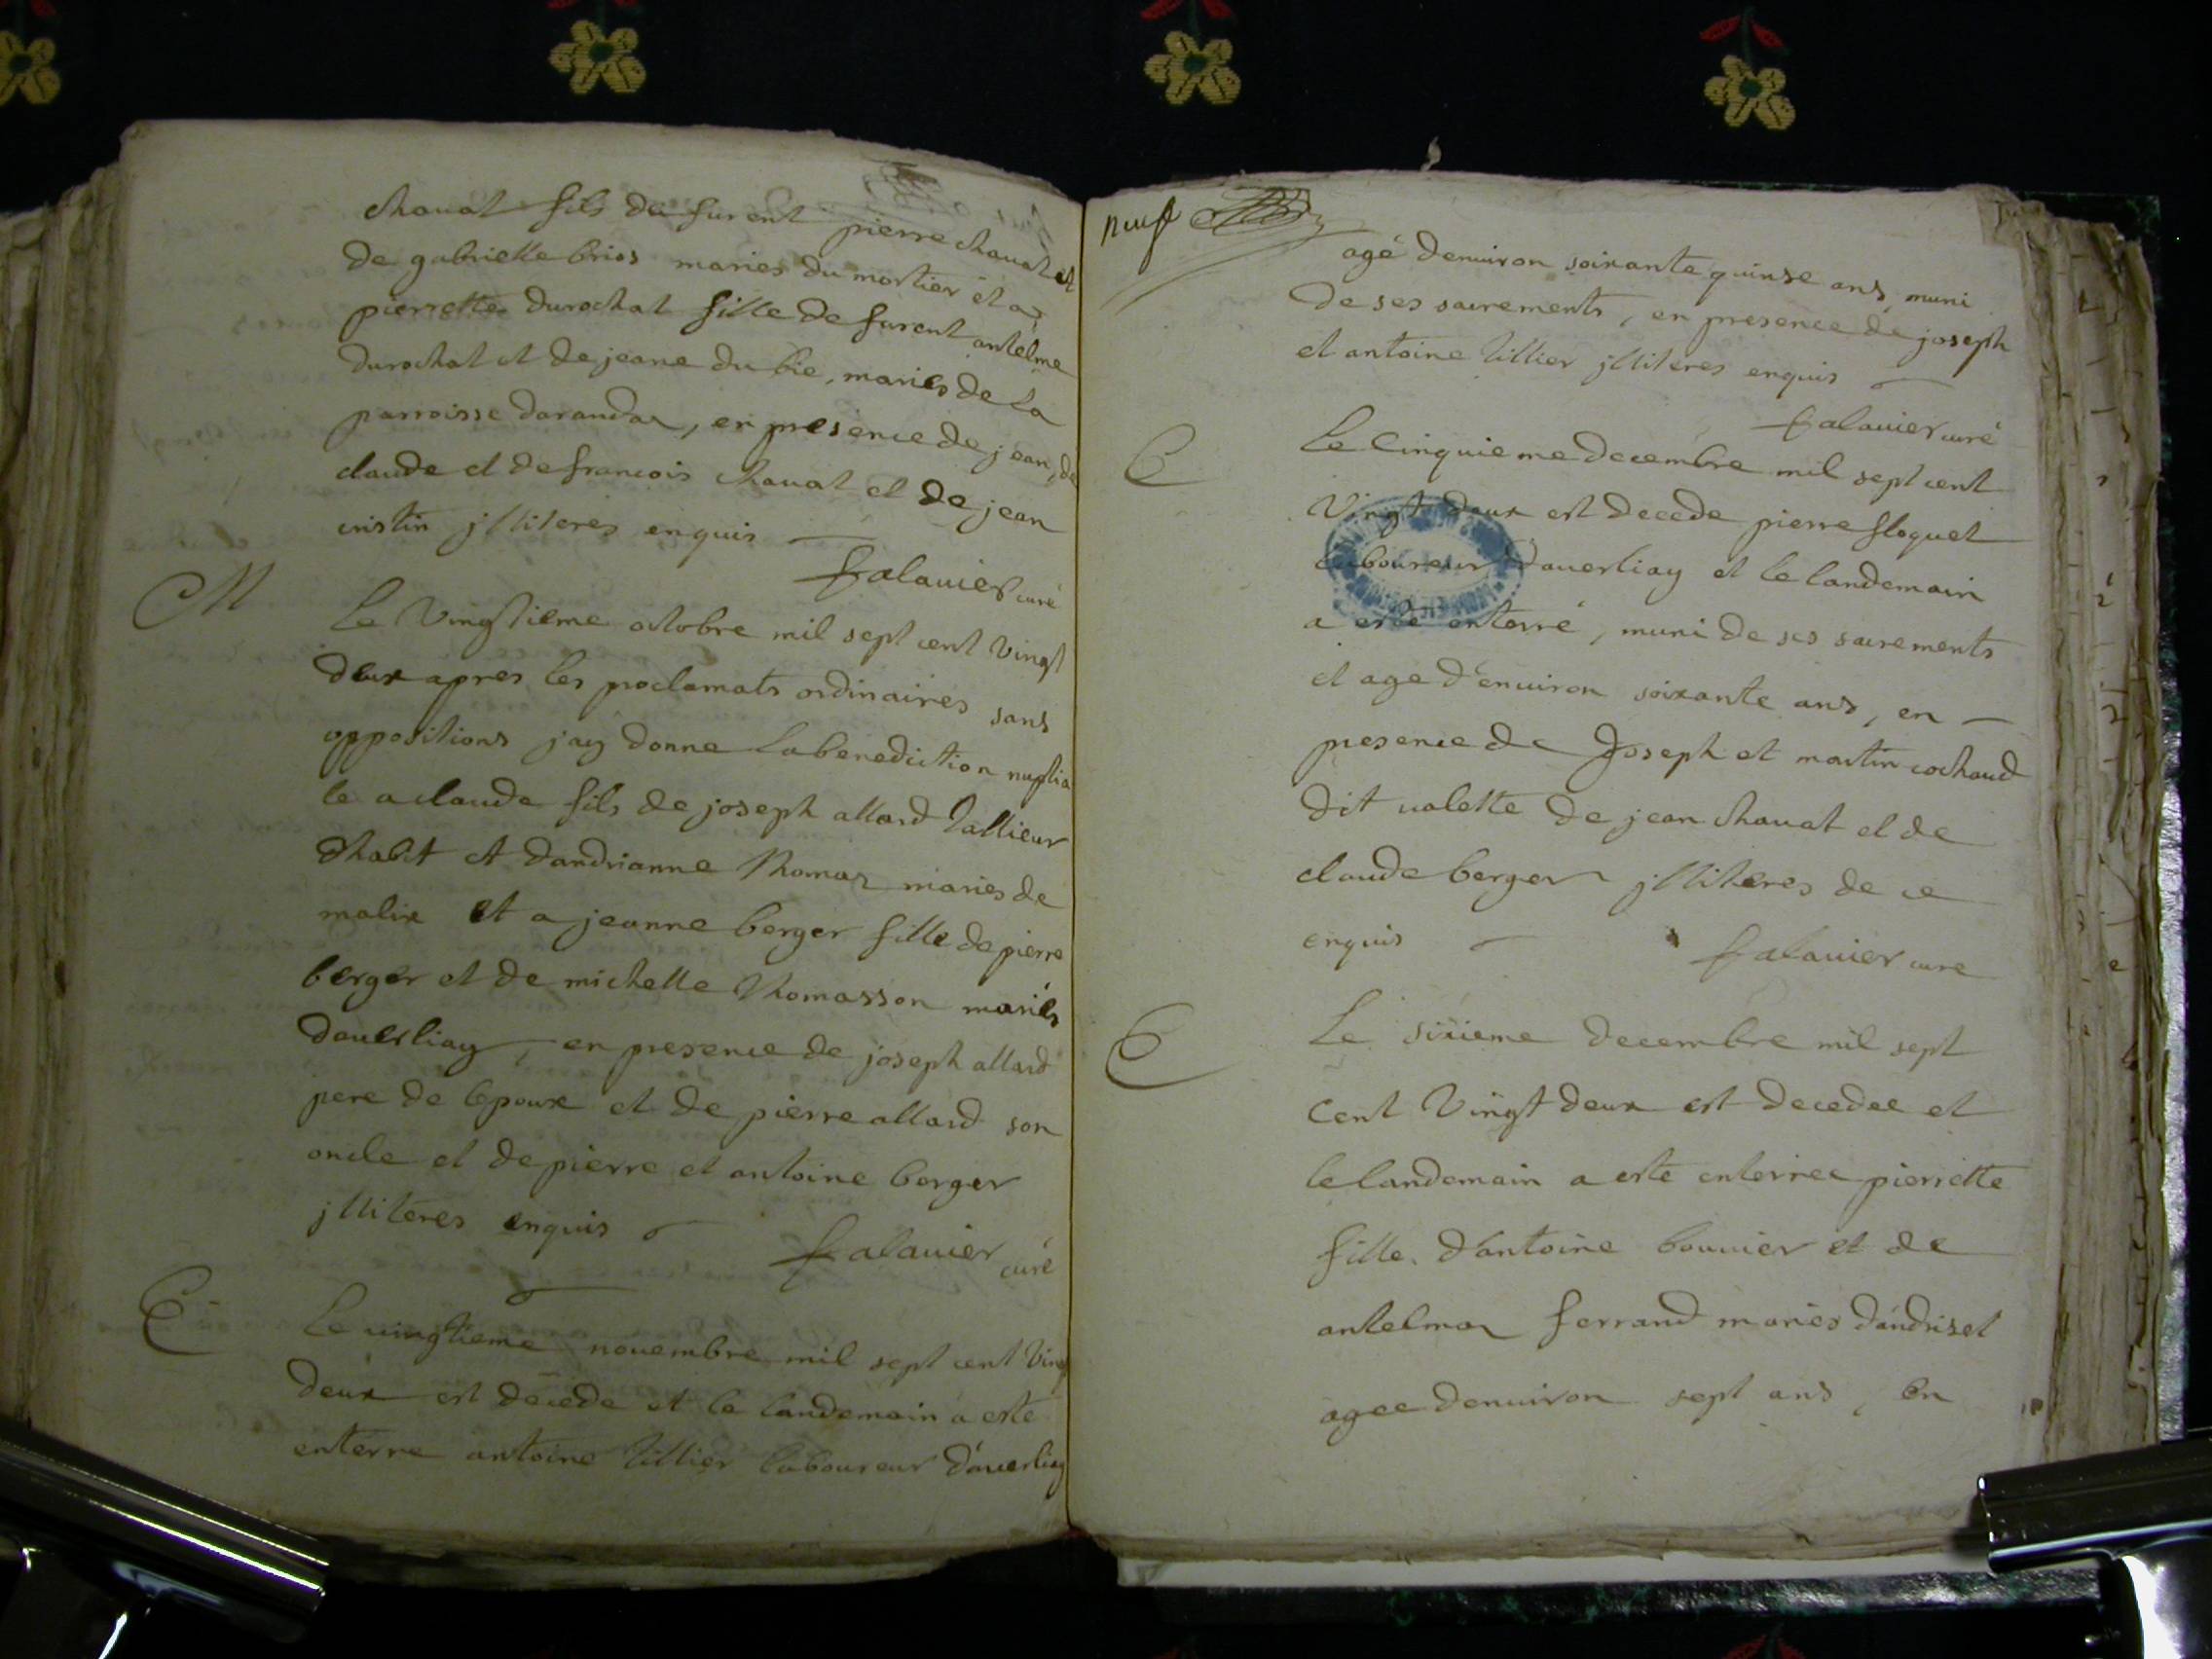 chavat fils de furent pierre chavat et
de gabrielle brios maries du mortier et a
pierrette durochat fille de furent antelme
durochat et de jeane du bie, maries de la
parroisse daranda, en presence de jean, de
claude et de francois chavat et de jean
cristin jlliteres enquis
falavier curé
M
Le Vingtieme octobre mil sept cent Vingt
deux apres les proclamats ordinaires sans
oppositions jay donne la benediction nuptia
le a claude fils de joseph allard tallieur
dhabit et dandrianne thomas maries de
malix et a jeanne berger fille de pierre
berger et de michelle thomasson mariés
daverliay, en presence de joseph allard
pere de lepoux et de pierre allard son
oncle et de pierre et antoine berger
jlliteres enquis
falavier curé
E
Le vingtieme novembre mil sept cent Ving
deux est decede et le landemain a este
enterre antoine tillier laboureur d'averliay
neuf
agé denuiron soixante quinse ans, muni
de ses sacrements, en presence de joseph
et antoine tillier jlliteres enquis
falavier curé
E
Le Cinquieme decembre mil sept cent
Vingt deux est decede pierre floquet
laboureur d'averliay et le landemain
a este enterré, muni de ses sacrements
et age d'enuiron soixante ans, en
presence de Joseph et martin cochaud
dit valette de jean chavat et de
claude berger jlliteres de ce
enquis
falavier cure
E
Le sixieme decembre mil sept
Cent Vingt deux est decedee et
le landemain a este enterree pierrette
fille d'antoine bouvier et de
antelma ferrand maries d'andriset
agee denuiron sept ans, en